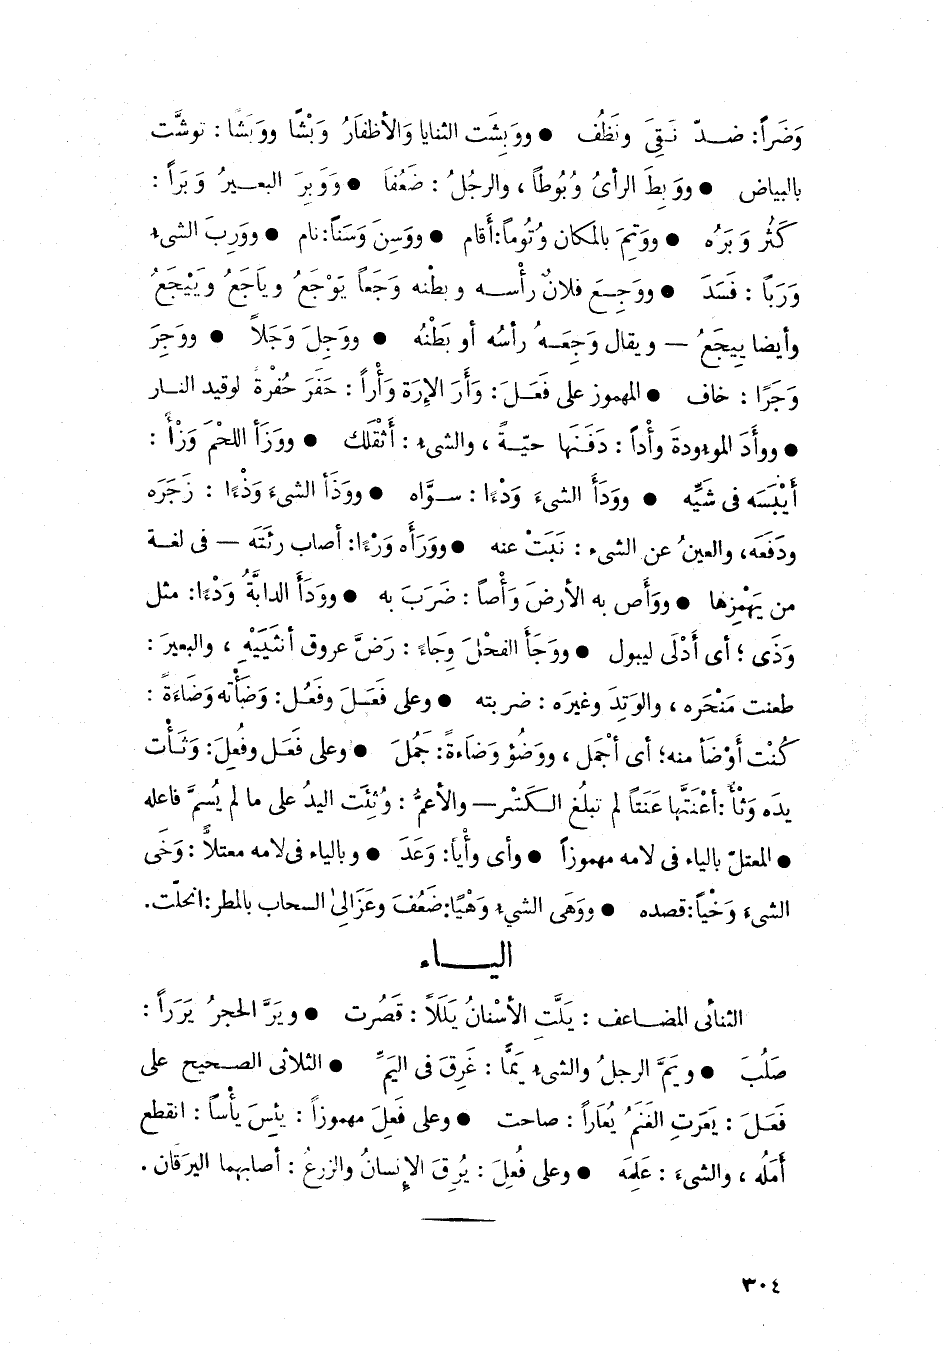 وَضَراً: ضدّ نَقِيَ ونَظُف ● ووَبِشَت الثنايا وَالأظفَارُ وَبْشًا ووَبَشًا: توشَّت
بالبياض ● ووَبِطَ الرأىُ وُبُوطاً ، والرجُلُ : ضَعُفَا ● وَوَبِرَ البعيرُ وَبَراً :
كَثُر وَبَرُه ● ووَتِمَ بالمكان وُتُوماً: أَقام ● ووَسِنَ وَسَناً: نام ● ووَرِبَ الشىء
وَرَبًا : فَسَدَ ● ووَجِعَ فلانٌ رأْسه وبطْنه وَجَعاً يَوْجَعُ ويَاجَعُ ويَيْجَعُ
وأيضا يِيجَعُ — ويقال وَجِعَهُ رأسُه أو بَطْنُه ● ووَجِلَ وَجَلاً ● ووَجِرَ
وَجَرًا : خاف ● المهموز على فَعَلَ: وَأَرَ الإرَة وَأْراً : حَفَرَ حُفْرة لوقيد النار
● ووأَدَ الموءودةَ وأْداً : دَفَنَها حيّةً ، والشىء : أَثْقَلك ● ووَزَأ اللحْمَ وَزْأ :
أَيْبَسَه فى شَيِّه ● ووَدَأَ الشىءَ وَدْءًا : سوَّاه ● ووَذَأ الشىءَ وَذْءًا : زَجَرَه
ودَفَعَه، والعينُ عن الشىء : نَبَتْ عنه ● ووَرَأَه وَرْءًا: أصاب رئتَه — فى لغة
من يَهْمِزها ● ووَأَص به الأرضَ وَأْصاً : ضَرَبَ به ● ووَدَأَ الدابَّةُ وَدْءًا: مثل
وَذَى ؛ أى أَدْلَى ليبول ● ووَجَأَ الفحْلَ وِجَاءً : رَضَّ عروق أنثَيَيْهِ ، والبعيرَ :
طعنت مَنْحَره ، والوَتِدَ وغيرَه : ضربته ● وعلى فَعَلَ وفَعُل: وَضَأْته وَضَاءَةً :
كُنْت أَوْضَأ منه؛ أى أجْمَل ، ووَضُؤ وَضَاءةً: جَمُلَ ● وعلى فَعَل وفُعِلَ: وَثَأْت
يدَه وَثْأً :أَعْنَتَّها عَنَتاً لم تبلُغ الكَسْر— والأعمُّ : وُثِئَت اليدُ على ما لم يُسمَّ فاعله
● المعتلّ بالياء فى لامه مهموزاً ● وأى وأْياً: وَعَدَ ● وبالياء فى لامه معتلاًّ : وَخَى
الشىء وَخْياً: قصده ● ووَهَى الشىء وَهْيًا: ضَعُفَ وعَزَالِىْ السحاب بالمطر: انحلّت.
اليـــاء
الثنائى المضاعف : يَلَّتِ الأسْنانُ يَلَلاً : قَصُرت ● ويَرَّ الحجرُ يَرَراً :
صَلُبَ ● ويَمَّ الرجلُ والشىء يَمًّا : غَرِقَ فى اليَمِّ ● الثلاثى الصحيح على
فَعَلَ : يَعَرَتِ الغَنَمُ يُعَاراً : صاحت ● وعلى فَعِلَ مهموزاً : يئِسَ يأْساً : انقطع
أَمَلُه ، والشىءَ : عَلِمَه ● وعلى فُعِلَ : يُرِقَ الإنسانُ والزرعُ : أصابهما اليرَقان .
٣٠٤